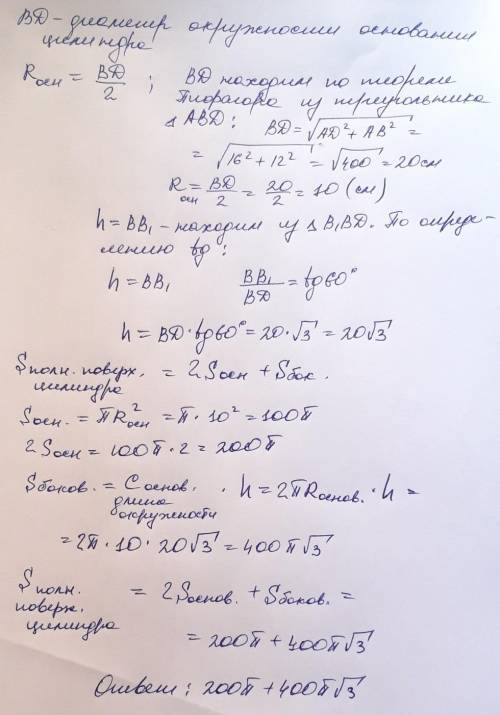 BD - диаметр окружности основания
цилиндра
Rосн = BD/2 ; BD находим по теореме
Пифагора из треугольника
△ ABD: BD = √(AD² + AB²) =
= √(16² + 12²) = √400 = 20см
Rосн = BD/2 = 20/2 = 10 (см)
h = BB₁ - находим из △ B₁BD. По опреде-
лению tg:
h = BB₁ BB₁/BD = tg60°
h = BD · tg60° = 20 · √3 = 20√3
Sполн. поверх. = 2Sосн + Sбок.
цилиндра
Sосн. = πR²осн = π · 10² = 100π
2Sосн = 100π · 2 = 200π
Sбоков. = Cоснов. · h = 2πRоснов. · h =
длина
окружности
= 2π · 10 · 20√3 = 400π√3
Sполн. = 2Sоснов. + Sбоков. =
поверх.
цилиндра
= 200π + 400π√3
Ответ: 200π + 400π√3